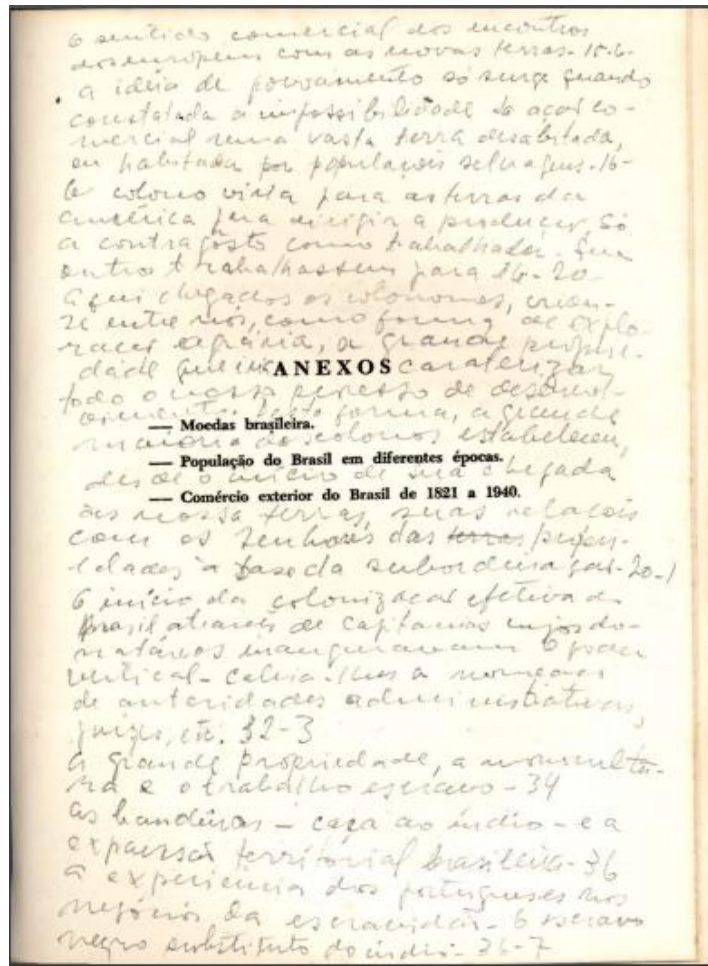 O sentido comercial dos encontros
dos europeus com as novas terras - 15-6-
a idéia de povoamento só surge quando
constatada a impossibilidade da ação co-
mercial numa vasta terra desabitada,
ou habitada por populações selvagens - 16-
O colono viria para as terras da
América para dirigir a produção, só
a contragosto como trabalhador. Que
outros trabalhassem para 16-20-
Aqui chegados os colonos,
se entre nós, como forma de explo-
ração agrária, a grande proprie-
dade que caraterizar
ANEXOS
todo o nosso processo de desenvol-
vimento. Desta forma, a grande
— Moedas brasileira.
maioria dos colonos estabeleceu,
— População do Brasil em diferentes épocas.
desde o início de sua chegada
— Comércio exterior do Brasil de 1821 a 1940.
às nossa terras, suas relações
com os senhores das terras propri-
edades à base da subordinação - 20-1
O início da colonização efetiva do
Brasil através de capitanias cujos do-
natários inauguraram o poder
vertical - cabia-lhes a nomeação
de autoridades administrativas,
juízes, etc. 32-3
A grande propriedade, a monocultu-
ra e o trabalho escravo - 34
As bandeiras - caça ao índio - e a
expansão territorial brasileira - 36
A experiencia dos portugueses nos
negócios da escravidão - O escravo
negro substituto do índio - 36-7